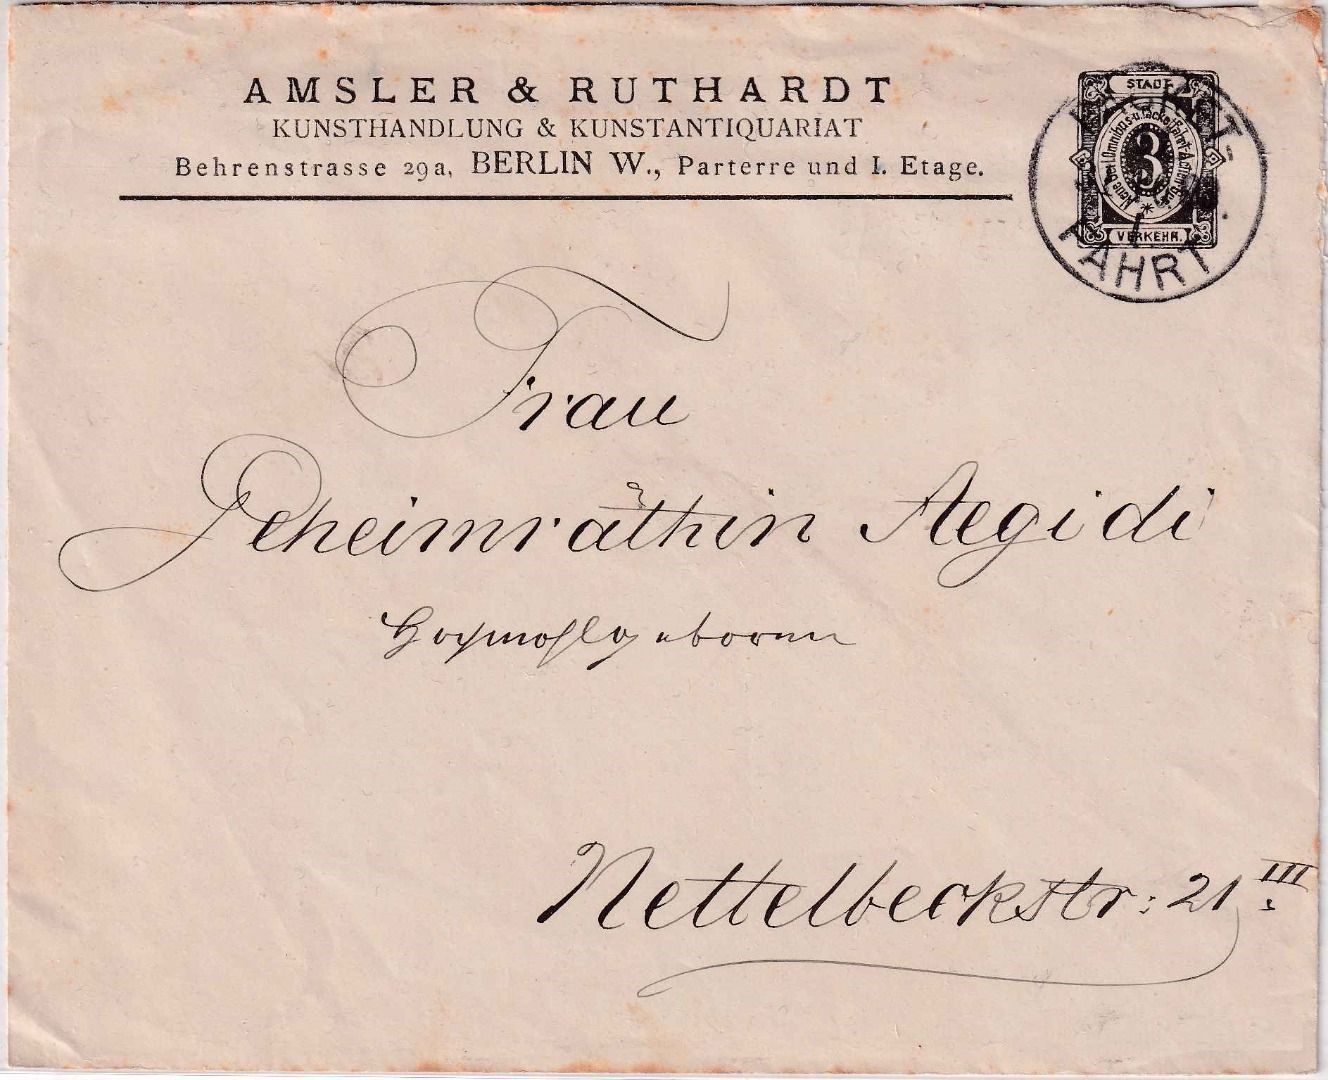 AMSLER & RUTHARDT
KUNSTHANDLUNG & KUNSTANTIQUARIAT
Behrenstrasse 29a, BERLIN W., Parterre und I. Etage.
STADT
3
VERKEHR.
FAHRT
Frau
Geheimräthin Aegidi
Hochwohlgeboren
Nettelbeckstr: 21 III